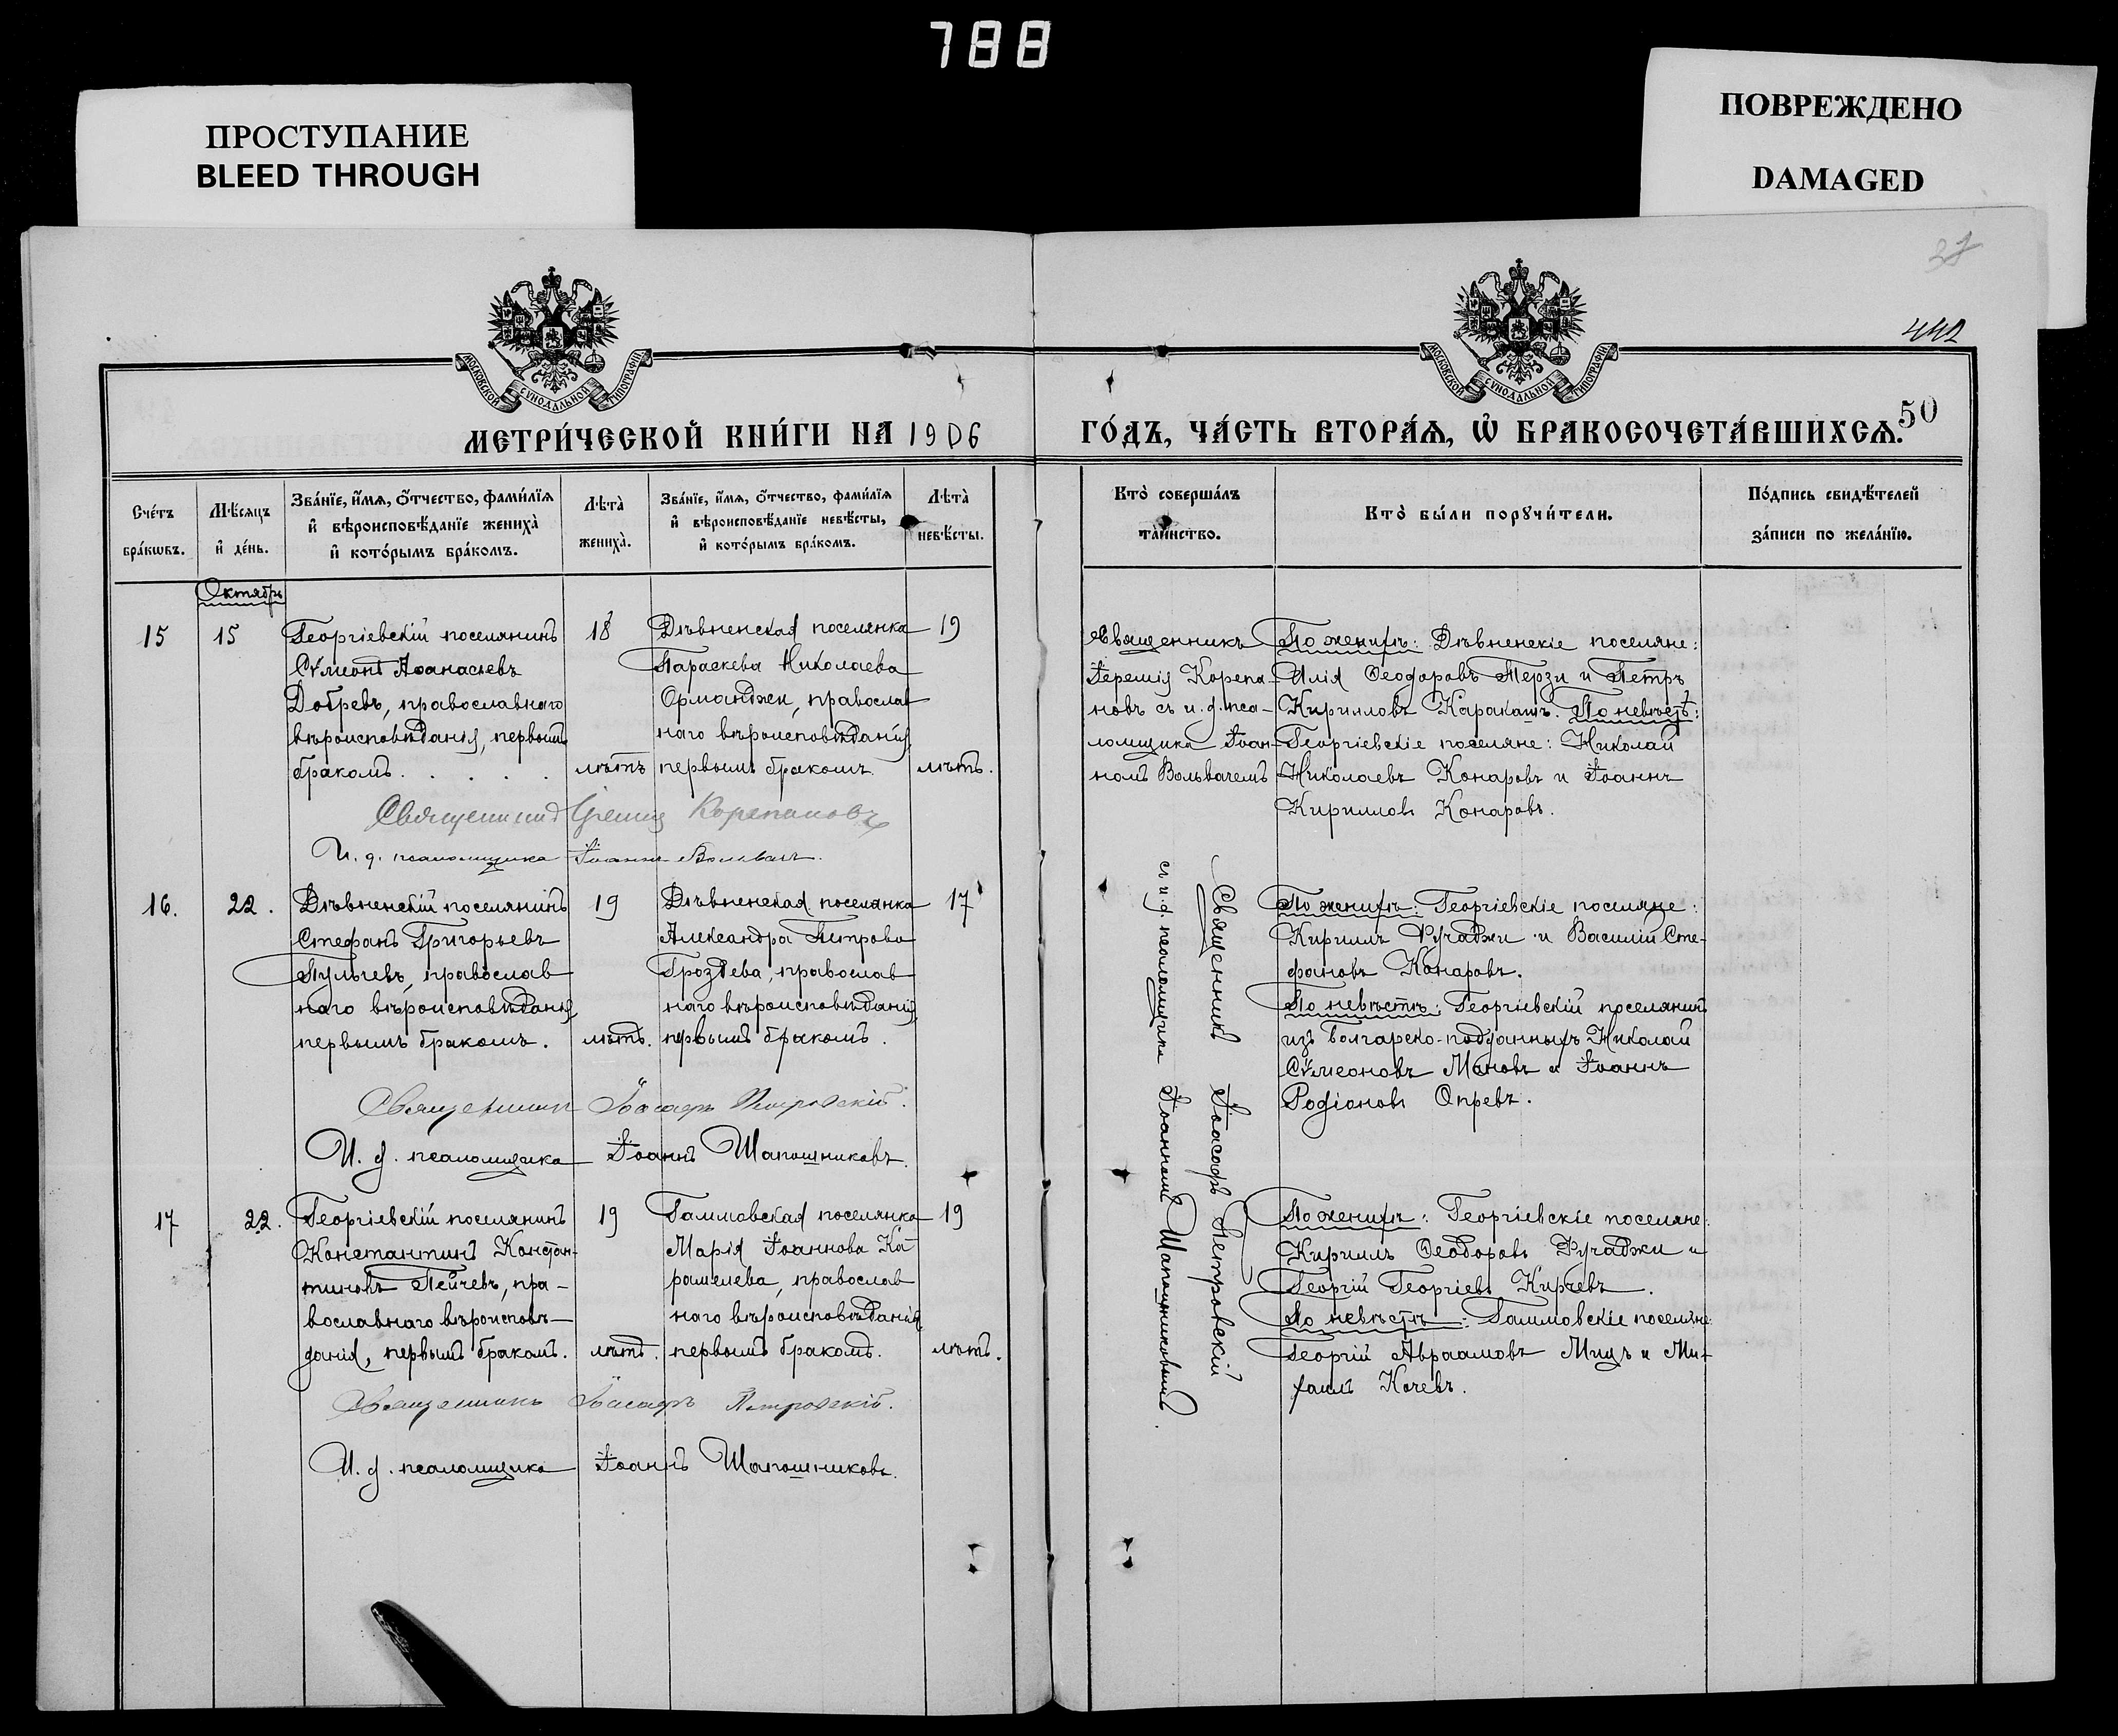 788
ПРОСТУПАНИЕ
BLEED THROUGH
ПОВРЕЖДЕНО
DAMAGED
442
МОСКОВСКОЙ СѴНОДАЛЬНОЙ ТИПОГРАФІИ
МОСКОВСКОЙ СѴНОДАЛЬНОЙ ТИПОГРАФІИ
МЕТРИ́ЧЕСКОЙ КНИ́ГИ НА 1906
ГО́ДЪ, ЧА́СТЬ ВТОРА́Ѧ, Ѽ БРАКОСОЧЕТА́ВШИХСѦ.
50
Сче́тъ
бра́кѡвъ.
Мѣ́сѧцъ
и҆ де́нь.
Зва́нїе, и҆́мѧ, ѻ҆́тчество, фами́лїѧ
и҆ вѣроисповѣ́данїе жениха̀
и҆ кото́рымъ бра́комъ.
Лѣта̀
жениха̀.
Зва́нїе, и҆́мѧ, ѻ҆́тчество, фами́лїѧ
и҆ вѣроисповѣ́данїе невѣ́сты,
и҆ кото́рымъ бра́комъ.
Лѣта̀
невѣ́сты.
Кто̀ соверша́лъ
та́инство.
Кто̀ бы́ли порꙋчи́тели.
По́дпись свидѣ́телей
за́писи по жела́нїю.
Октябрь
15
15
Георгіевскій поселянинъ
Сѵмеонъ Аѳанасьевъ
Добревъ, православнаго
вѣроисповѣданія, первымъ
бракомъ.
18
лѣтъ
Дѣвненская поселянка
Параскева Николаева
Орманджи, православ
наго вѣроисповѣданія,
первымъ бракомъ.
19
лѣтъ.
Священникъ
Іеремія Корепа-
новъ съ и. д. пса-
ломщика Іоан-
номъ Вольвачемъ
По женихѣ: Дѣвненскіе поселяне:
Илія Ѳеодоровъ Терзи и Петръ
Кирилловъ Каракашъ. По невѣстѣ:
Георгіевскіе поселяне: Николай
Николаевъ Конаровъ и Іоаннъ
Кирилловъ Конаровъ.
Священникъ Іеремія Корепановъ
И. д. псаломщика Іоаннъ Вольвачъ.
16.
22.
Дѣвненскій поселянинъ
Стефанъ Григорьевъ
Пульчевъ, православ
наго вѣроисповѣданія,
первымъ бракомъ.
19
лѣтъ.
Дѣвненская поселянка
Александра Петрова
Гроздева, православ
наго вѣроисповѣданія,
первымъ бракомъ.
17
Священникъ Іоасафъ Петровскій
съ и. д. псаломщика Іоанномъ Шапошниковымъ.
По женихѣ: Георгіевскіе поселяне:
Кириллъ Ручаджи и Василій Сте-
фановъ Конаровъ.
По невѣстѣ: Георгіевскій поселянинъ
изъ Болгарско-подданныхъ Николай
Сѵмеоновъ Мановъ и Іоаннъ
Родіоновъ Опревъ.
Священникъ Іоасафъ Петровскій.
И. д. псаломщика Іоаннъ Шапошниковъ.
17
22.
Георгіевскій поселянинъ
Константинъ Констан-
тиновъ Пейчевъ, пра-
вославнаго вѣроисповѣ-
данія, первымъ бракомъ.
19
лѣтъ.
Гаммовская поселянка
Марія Іоаннова Ка-
рашелева, православ
наго вѣроисповѣданія,
первымъ бракомъ.
19
лѣтъ.
По женихѣ: Георгіевскіе поселяне:
Кириллъ Ѳеодоровъ Ручаджи и
Георгій Георгіевъ Кирчевъ.
По невѣстѣ: Гаммовскіе поселяне:
Георгій Авраамовъ Мицъ и Ми-
хаилъ Кочевъ.
Священникъ Іоасафъ Петровскій.
И. д. псаломщика Іоаннъ Шапошниковъ.